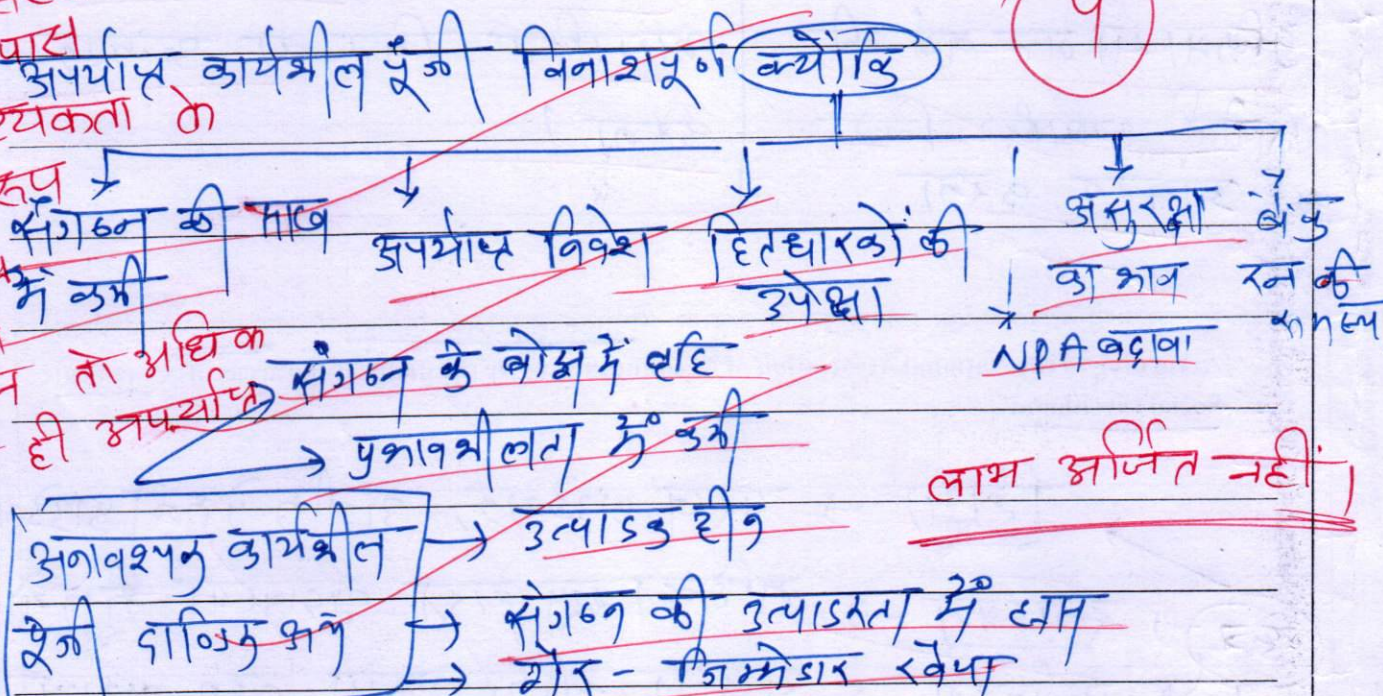 पास
अपर्याप्त कार्यशील पूँजी विनाशपूर्ण क्योंकि
यकता के
रूप
संगठन की साख में कमी
अपर्याप्त निवेश
हितधारकों की उपेक्षा
NPA बढ़ावा
असुरक्षा का भाव
बैंक रन की समस्य
तो अधिक
ही अपर्याप्त
संगठन के बोझ में वृद्धि
प्रभावशीलता में कमी
लाभ अर्जित नहीं।
अनावश्यक कार्यशील
पूँजी
उत्पादक हीन
संगठन की उत्पादकता में ह्रास
गैर - जिम्मेदार रवैया